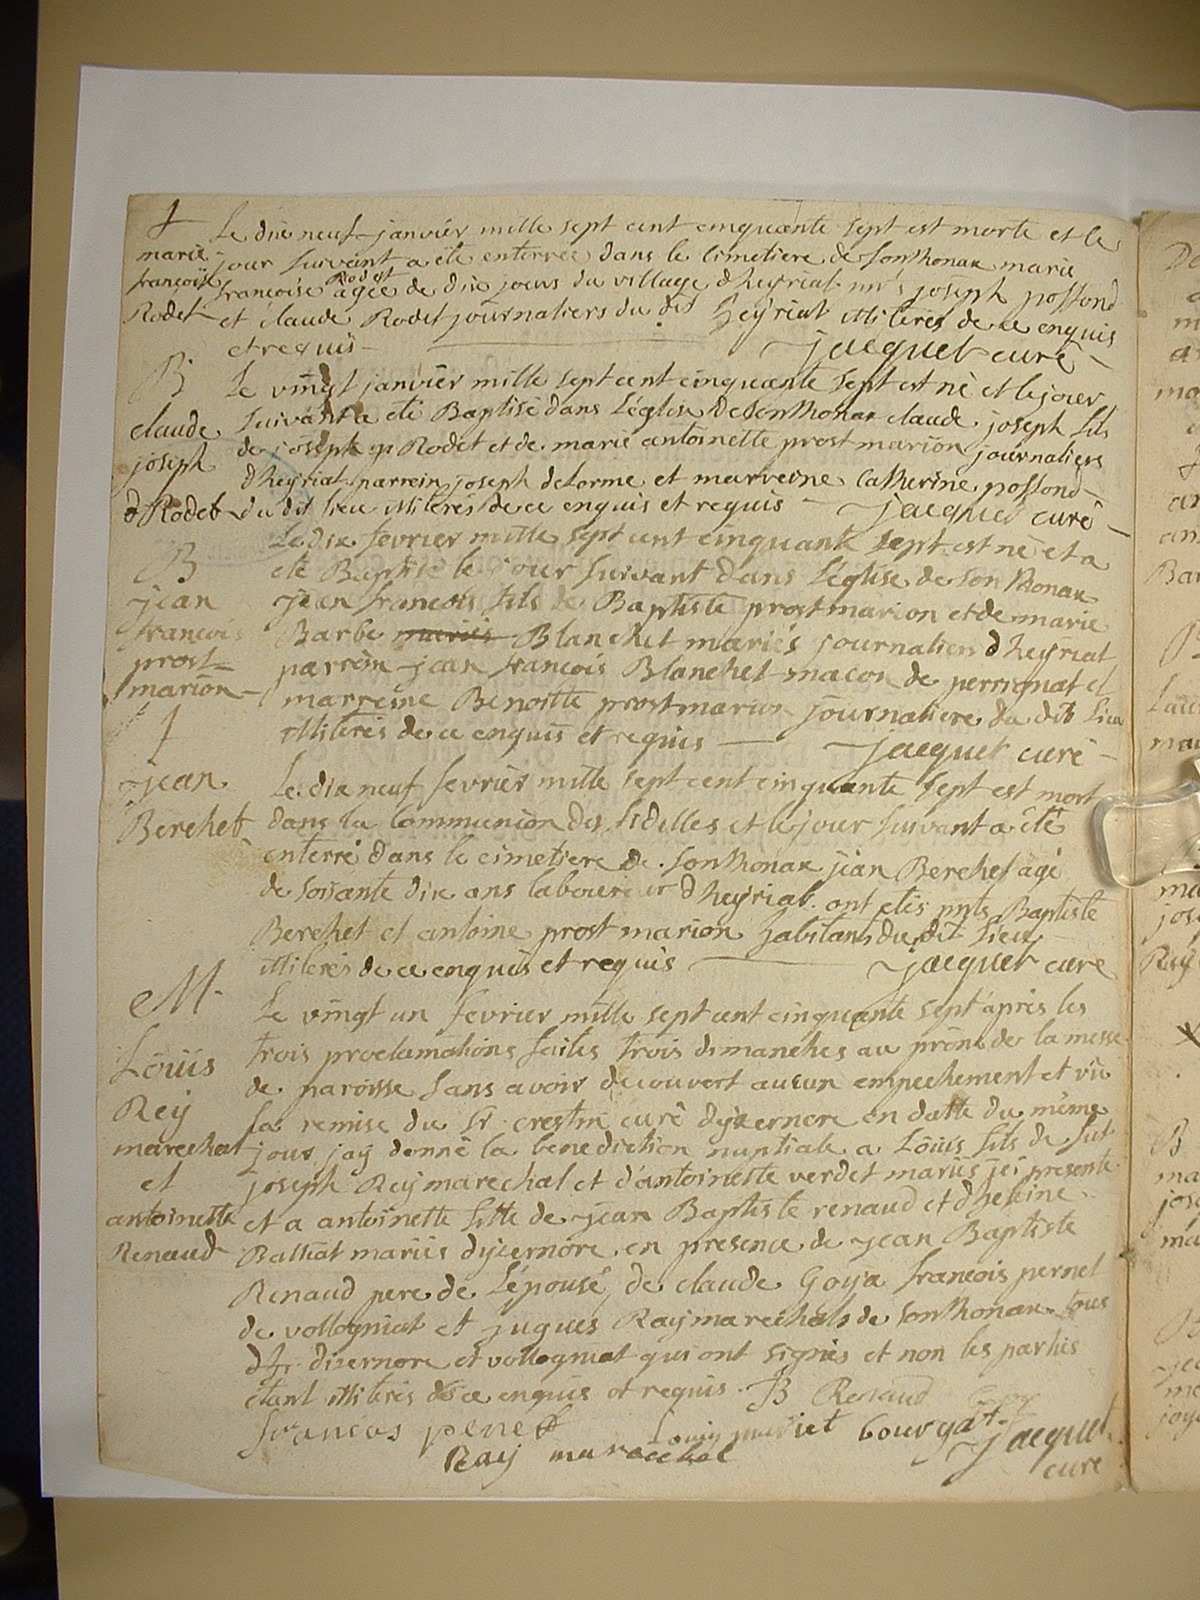 †
marie
françoise
Rodet
Le dix neuf janvier mille sept cent cinquante sept est morte et le
jour suivant a été enterrée dans le cimetiere de Sonthonax marie
françoise Rodet agée de dix jours du village d'heyriat pnts joseph possond
et claude Rodet journaliers du dit heyriat illiteres de ce enquis
et requis — jacquet curé
B
claude
joseph
Rodet
Le vingt janvier mille sept cent cinquante sept est né et le jour
suivant a été Baptisé dans l'église de Sonthonax claude joseph fils
de joseph Rodet et de marie antoinette prost marion journaliers
d'heyriat parrein joseph delorme et marreine Catherine possond
du dit lieu illiterés de ce enquis et requis — jacquet curé
B
jean
francois
prost
marion
Le dix fevrier mille sept cent cinquante sept est né et a
été Baptisé le jour suivant dans l'église de Sonthonax
jean francois fils de Baptiste prost marion et de marie
Barbe mariés Blanchet mariés journaliers d'heyriat
parrein jean francois Blanchet macon de perrignat et
marreine Benoitte prost marion journaliere du dit lieu
illiterés de ce enquis et requis — jacquet curé
†
jean
Berchet
Le dix neuf fevrier mille sept cent cinquante sept est mort
dans la Communion des fidelles et le jour suivant a été
enterré dans le cimetiere de Sonthonax jean Berchet agé
de soixante dix ans laboureur d'heyriat ont etés pnts Baptiste
Berchet et antoine prost marion habitants du dit lieu
illiterés de ce enquis et requis — jacquet curé
M
Loüis
Rey
marechal
et
antoinette
Renaud
Le vingt un fevrier mille sept cent cinquante sept après les
trois proclamations faites trois dimanches au prône de la messe
de paroisse sans avoir decouvert aucun empechement et vû
la remise du Sr crestin curé dyzernore en datte du même
jour jay donné la benediction nuptiale a Loüis fils de fut
joseph Rey marechal et d'antoinette verdet mariés ici presente
et a antoinette fille de jean Baptiste renaud et d'heleine
Balliat mariés dyzernore en presence de jean Baptiste
Renaud pere de l'épouse, de claude Goyx francois pernet
de vollogniat et hugues Ray marechals de Sonthonax tous
dizernore et vollogniat qui ont signés et non les parties
etant illiterés de ce enquis et requis. JB Renaud
francos penet
Ray marecchal
bourgat
jacquet
curé